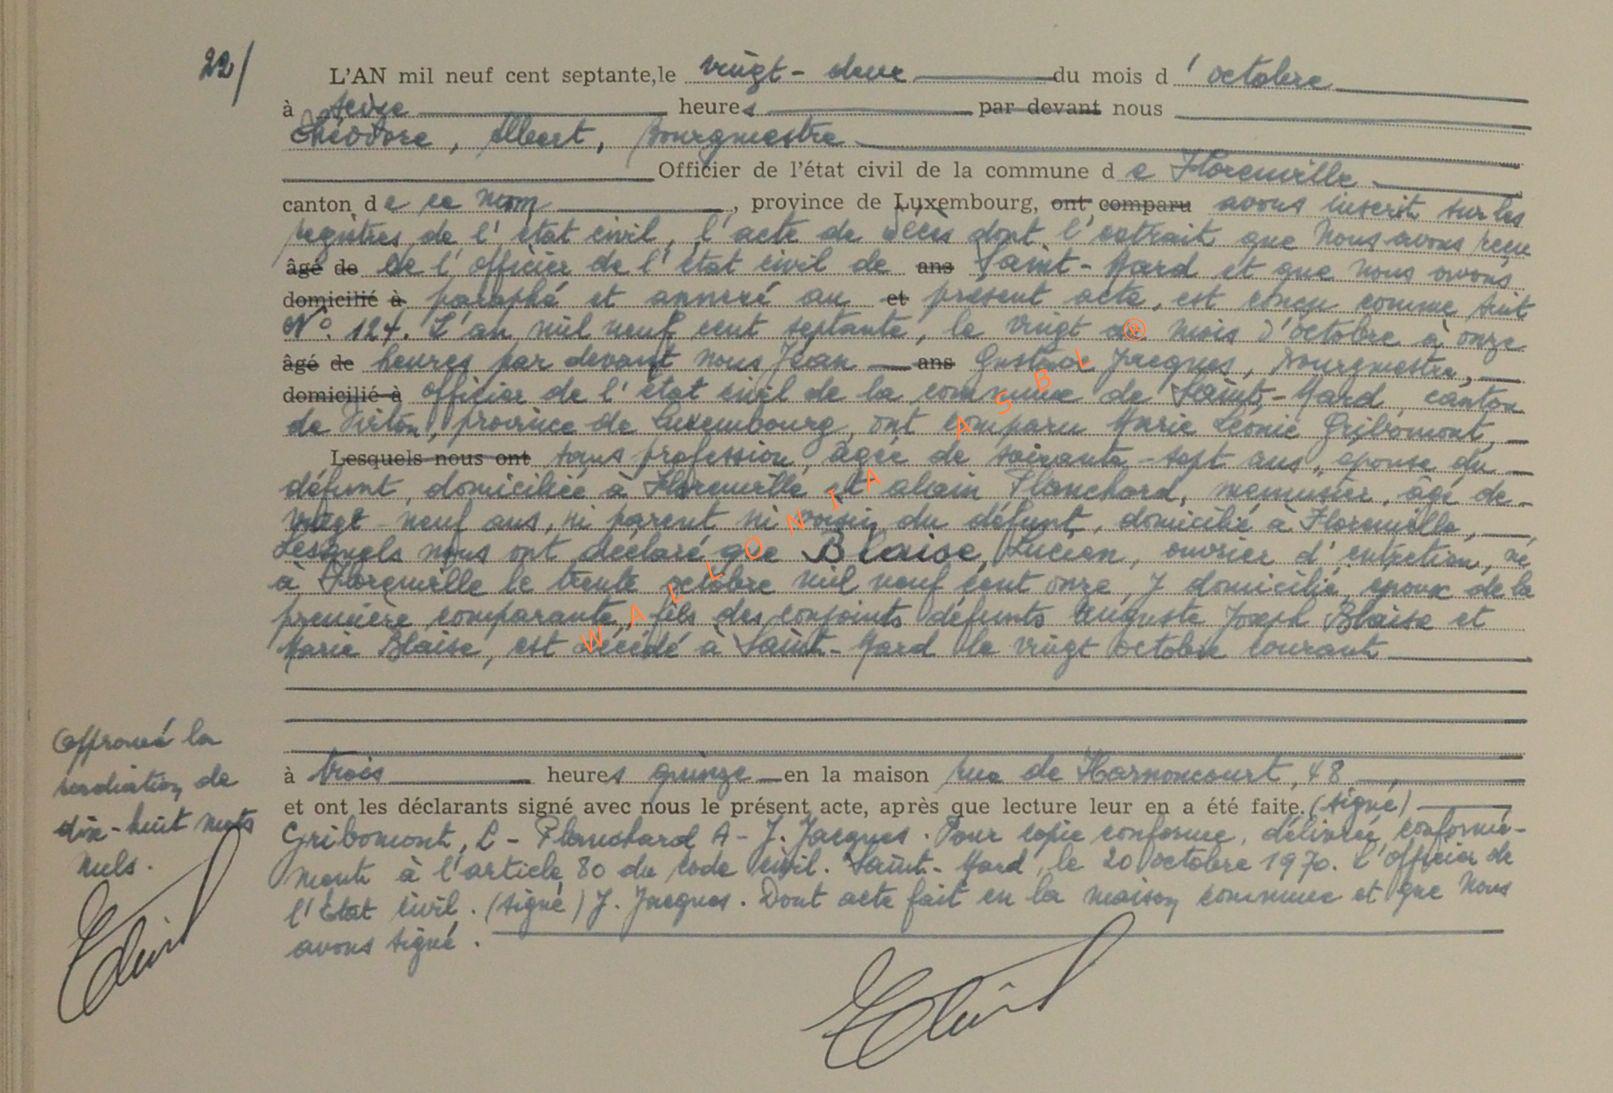 22/
L'AN mil neuf cent septante, le vingt-deux du mois d'octobre
à seize heures par devant nous
Théodore, Albert, Bourgmestre
Officier de l'état civil de la commune de Florenville
canton de ce nom, province de Luxembourg, ont comparu avons inscrit sur les
registres de l'état civil, l'acte de décès dont l'extrait que nous avons reçu
âgé de de l'officier de l'état civil de ans Saint-Mard et que nous avons
domicilié à paraphé et annexé au et présent acte, est conçu comme suit
N° 124. L'an mil neuf cent septante, le vingt du mois d'octobre à onze
âgé de heures par devant nous Jean ans Gustave Jacques, Bourgmestre,
domicilié à officier de l'état civil de la commune de Saint-Mard, canton
de Virton, province de Luxembourg, ont comparu Marie Léonie Gribomont,
Lesquels nous ont sans profession, âgée de soixante-sept ans, épouse du
défunt, domiciliée à Florenville et alain Planchard, menuisier, âgé de
vingt-neuf ans, ni parent ni voisin du défunt, domicilié à Florenville,
Lesquels nous ont déclaré que Blaise, Lucien, ouvrier d'entretien, né
à Florenville le trente octobre mil neuf cent onze, y domicilié, époux de la
première comparante, fils des conjoints défunts Auguste Joseph Blaise et
Marie Blaise, est décédé à Saint-Mard le vingt octobre courant
à trois heures quinze en la maison rue de Harnoncourt, 48
et ont les déclarants signé avec nous le présent acte, après que lecture leur en a été faite. (signé)
Gribomont, L - Planchard A - J. Jacques. Pour copie conforme, délivrée, conformé-
ment à l'article 80 du code civil. Saint-Mard, le 20 octobre 1970. L'officier de
l'Etat Civil. (signé) J. Jacques. Dont acte fait en la maison commune et que nous
avons signé.
Approuvé la
radiation de
dix-huit mots
nuls.
WALLONIA ASBL ®